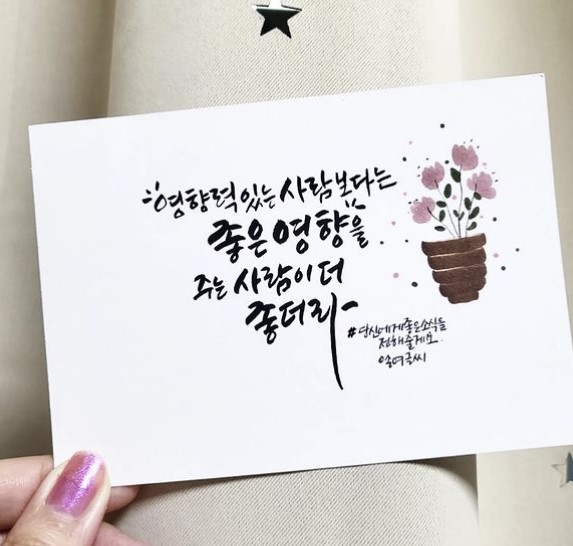 영향력 있는 사람보다는
좋은 영향을
주는 사람이 더
좋더라
#당신에게좋은소식을
전해줄게요